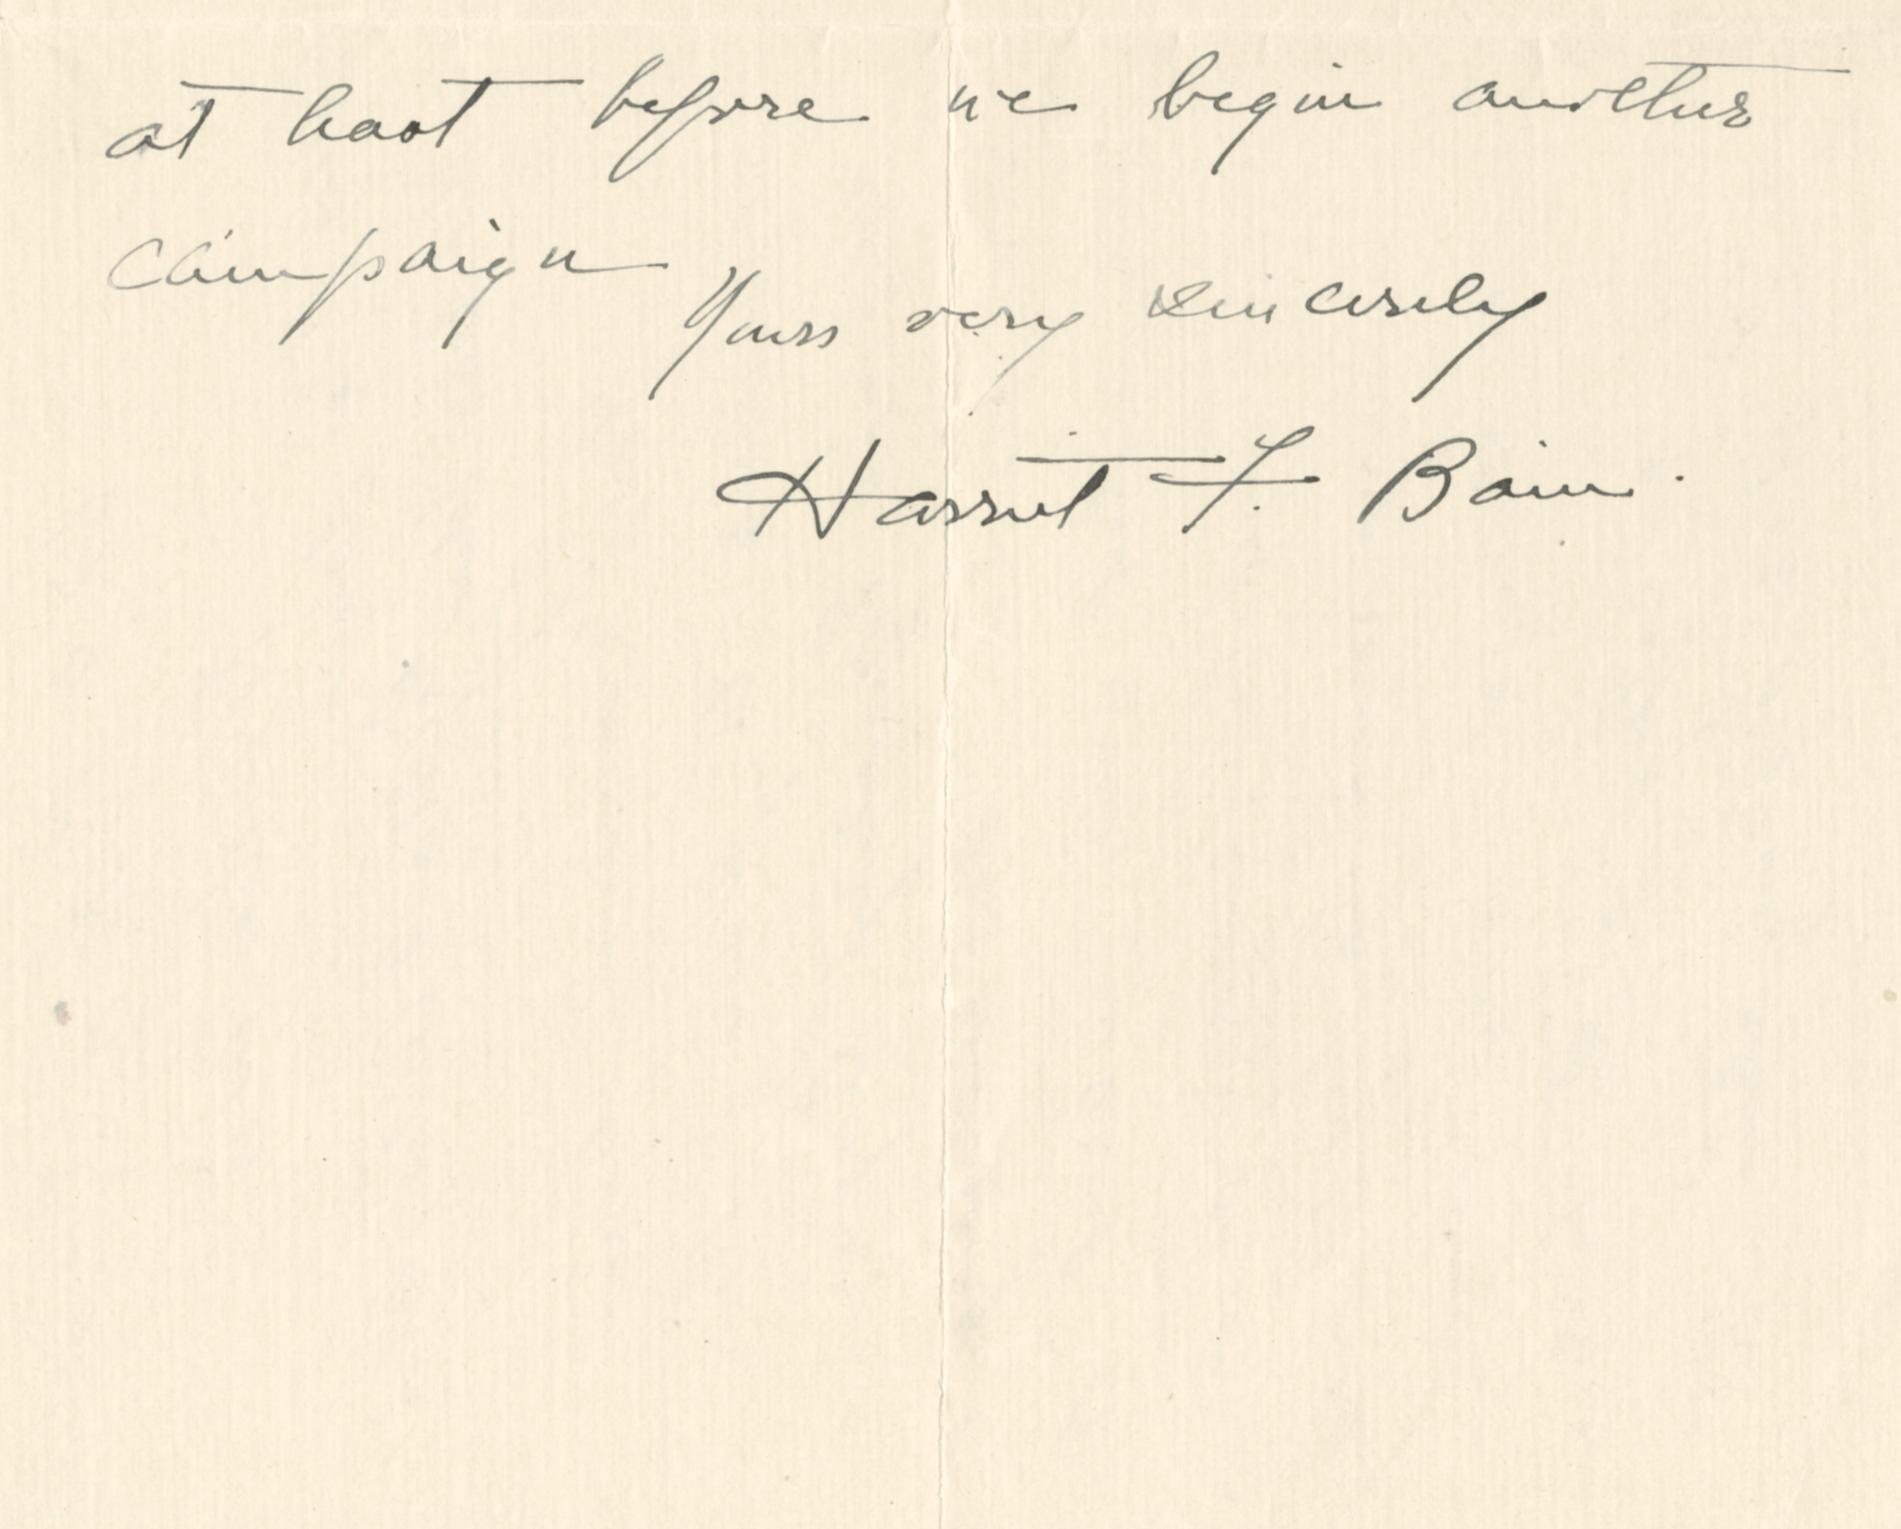 at least before we begin another
campaign
Yours very sincerely
Harriet F. Bain.